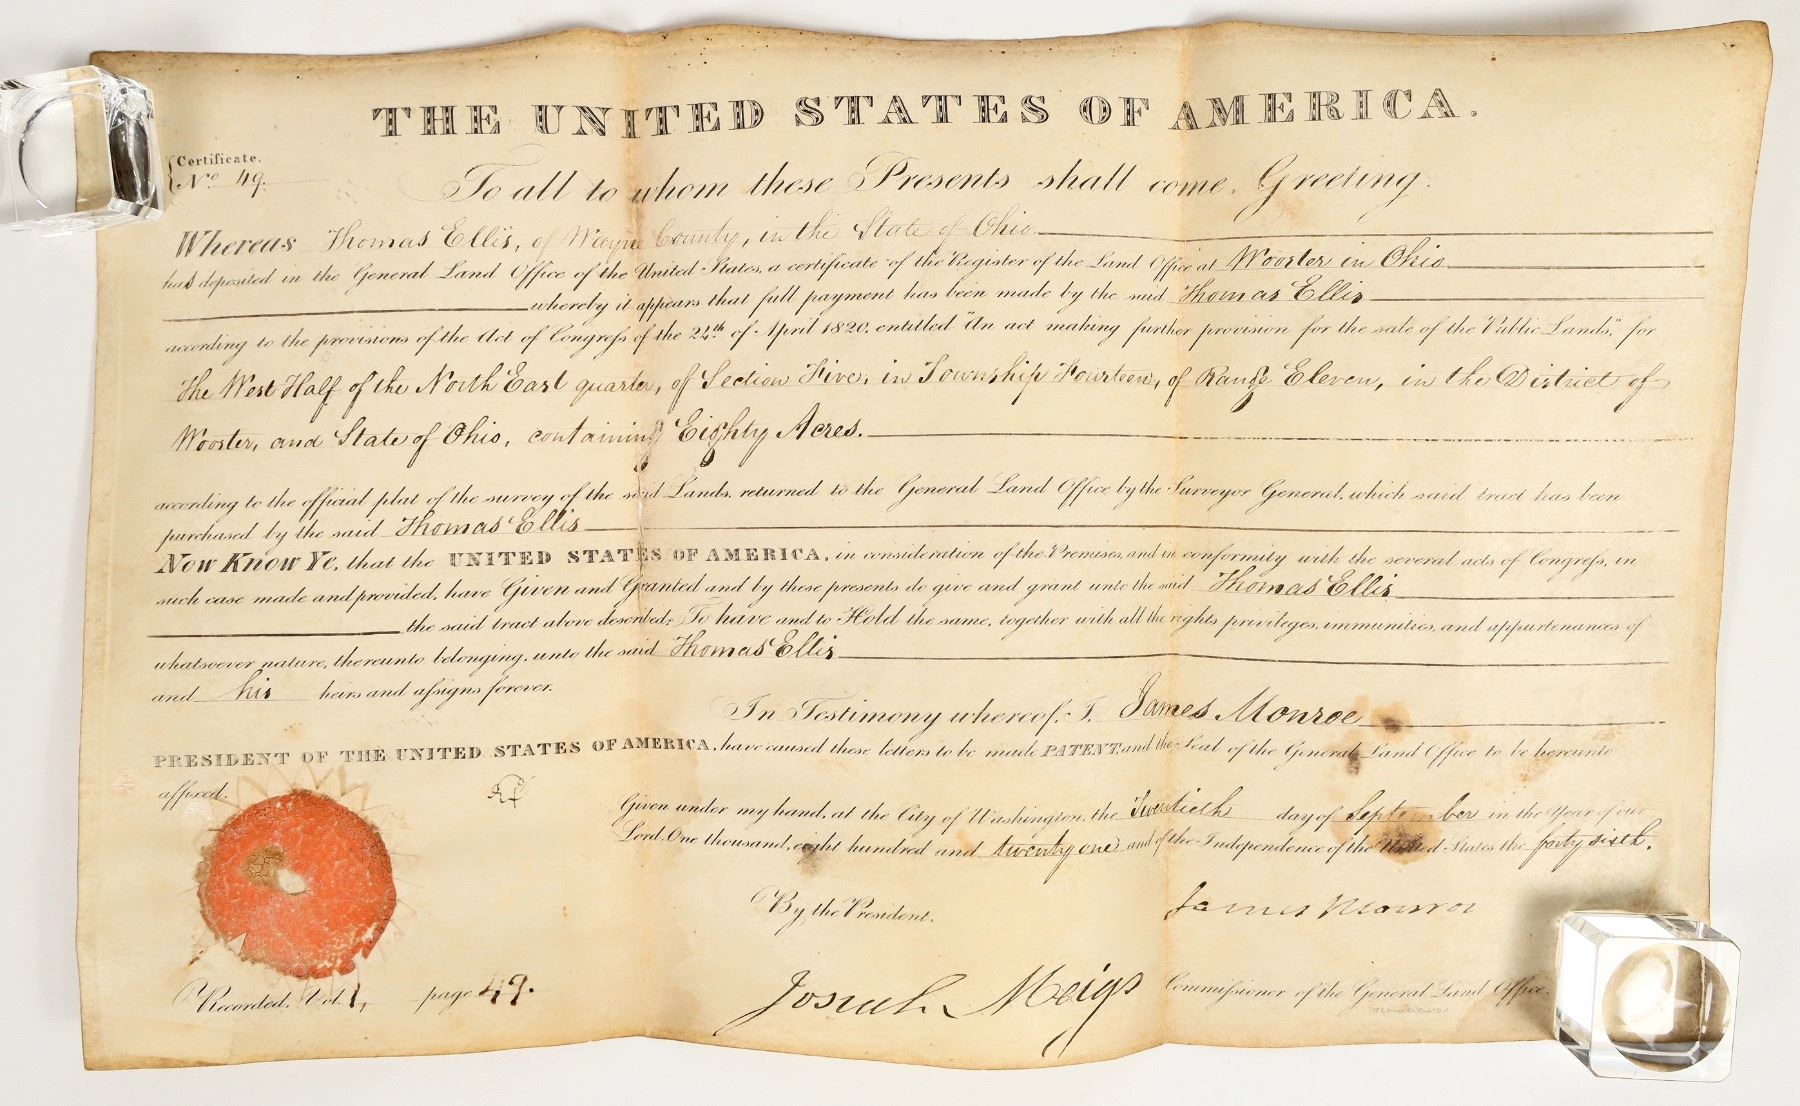 THE UNITED STATES OF AMERICA.
Certificate.
No. 49.
To all to whom these Presents shall come, Greeting.
Whereas Thomas Ellis, of Wayne County, in the State of Ohio
has deposited in the General Land Office of the United States, a certificate of the Register of the Land Office at Wooster in Ohio
whereby it appears that full payment has been made by the said Thomas Ellis
according to the provisions of the Act of Congress of the 24th of April 1820, entitled "An act making further provision for the sale of the Public Lands," for
The West Half of the North East quarter, of Section Five, in Township Fourteen, of Range Eleven, in the District of
Wooster, and State of Ohio, containing Eighty Acres.
according to the official plat of the survey of the said Lands, returned to the General Land Office by the Surveyor General, which said tract has been
purchased by the said Thomas Ellis
Now Know Ye, that the UNITED STATES OF AMERICA, in consideration of the Premises, and in conformity with the several acts of Congress, in
such case made and provided, have Given and Granted and by these presents do give and grant unto the said Thomas Ellis
the said tract above described: To have and to Hold the same, together with all the rights, privileges, immunities, and appurtenances of
whatsoever nature, thereunto belonging, unto the said Thomas Ellis
and his heirs and assigns forever.
In Testimony whereof, I, James Monroe
PRESIDENT OF THE UNITED STATES OF AMERICA, have caused these letters to be made PATENT, and the Seal of the General Land Office to be hereunto
affixed.
Given under my hand, at the City of Washington, the Twentieth day of September in the Year of our
Lord, One thousand, eight hundred and twenty one and of the Independence of the United States the forty sixth.
By the President,
James Monroe
Josiah Meigs Commissioner of the General Land Office.
Recorded, Vol. 1, page 49.